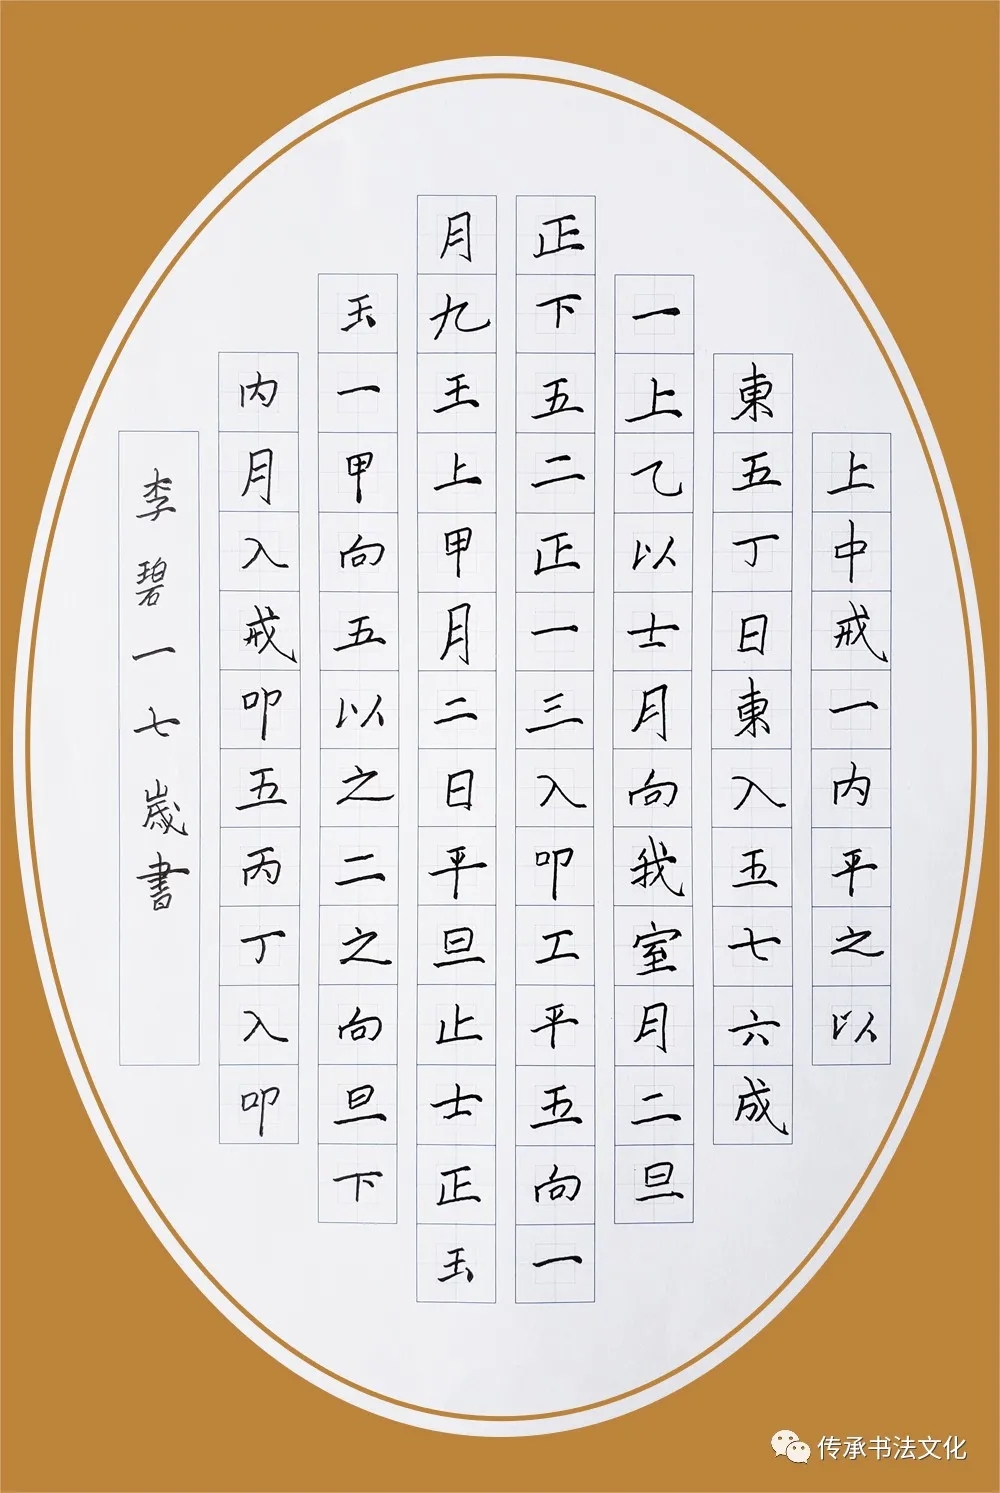 上中戒一内平之以
東五丁日東入五七六成
一上乙以士月向我室月二旦
正下五二正一三入叩工平五向一
月九王上甲月二日平旦止士正玉
玉一甲向五以之二之向旦下
内月入戒叩五丙丁入叩
李碧一七歲書
传承书法文化